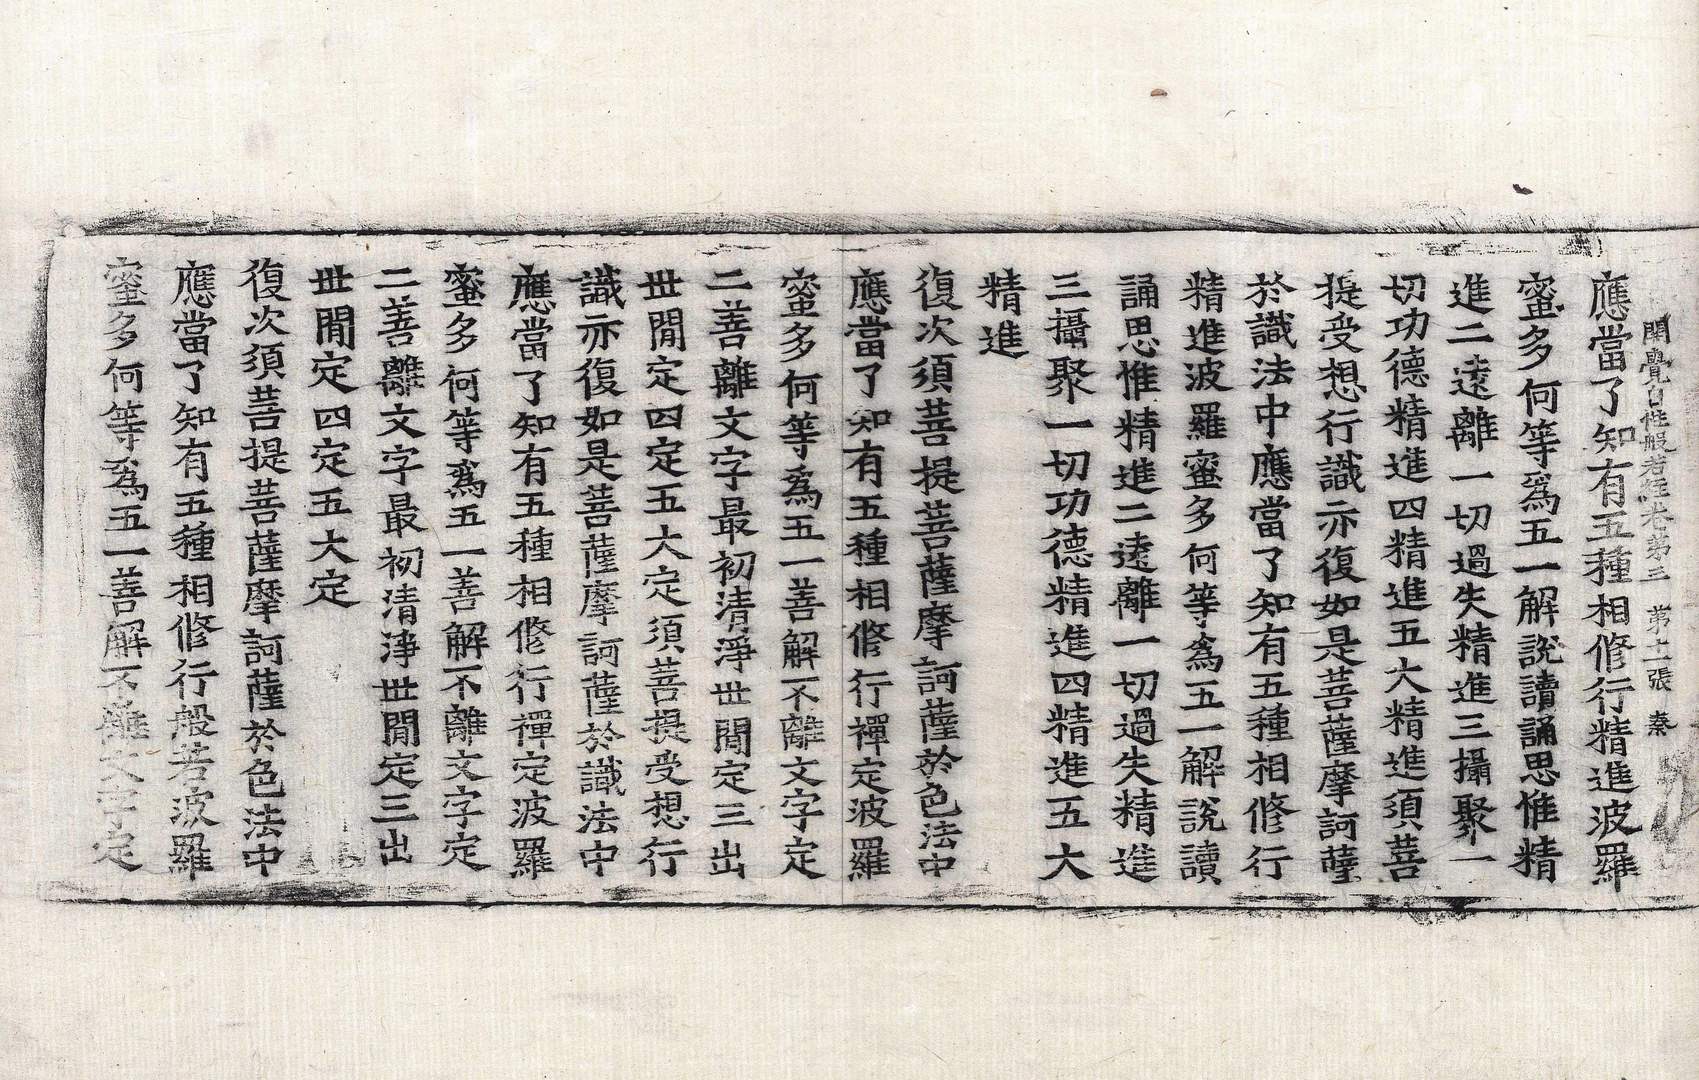 開覺自性般若經卷第三　第十二張　秦
應當了知有五種相修行精進波羅
蜜多何等爲五一解說讀誦思惟精
進二遠離一切過失精進三攝聚一
切功德精進四精進五大精進須菩
提受想行識亦復如是菩薩摩訶薩
於識法中應當了知有五種相修行
精進波羅蜜多何等爲五一解說讀
誦思惟精進二遠離一切過失精進
三攝聚一切功德精進四精進五大
精進
復次須菩提菩薩摩訶薩於色法中
應當了知有五種相修行禪定波羅
蜜多何等爲五一善解不離文字定
二善離文字最初清淨世閒定三出
世閒定四定五大定須菩提受想行
識亦復如是菩薩摩訶薩於識法中
應當了知有五種相修行禪定波羅
蜜多何等爲五一善解不離文字定
二善離文字最初清淨世閒定三出
世閒定四定五大定
復次須菩提菩薩摩訶薩於色法中
應當了知有五種相修行般若波羅
蜜多何等爲五一善解不離文字定